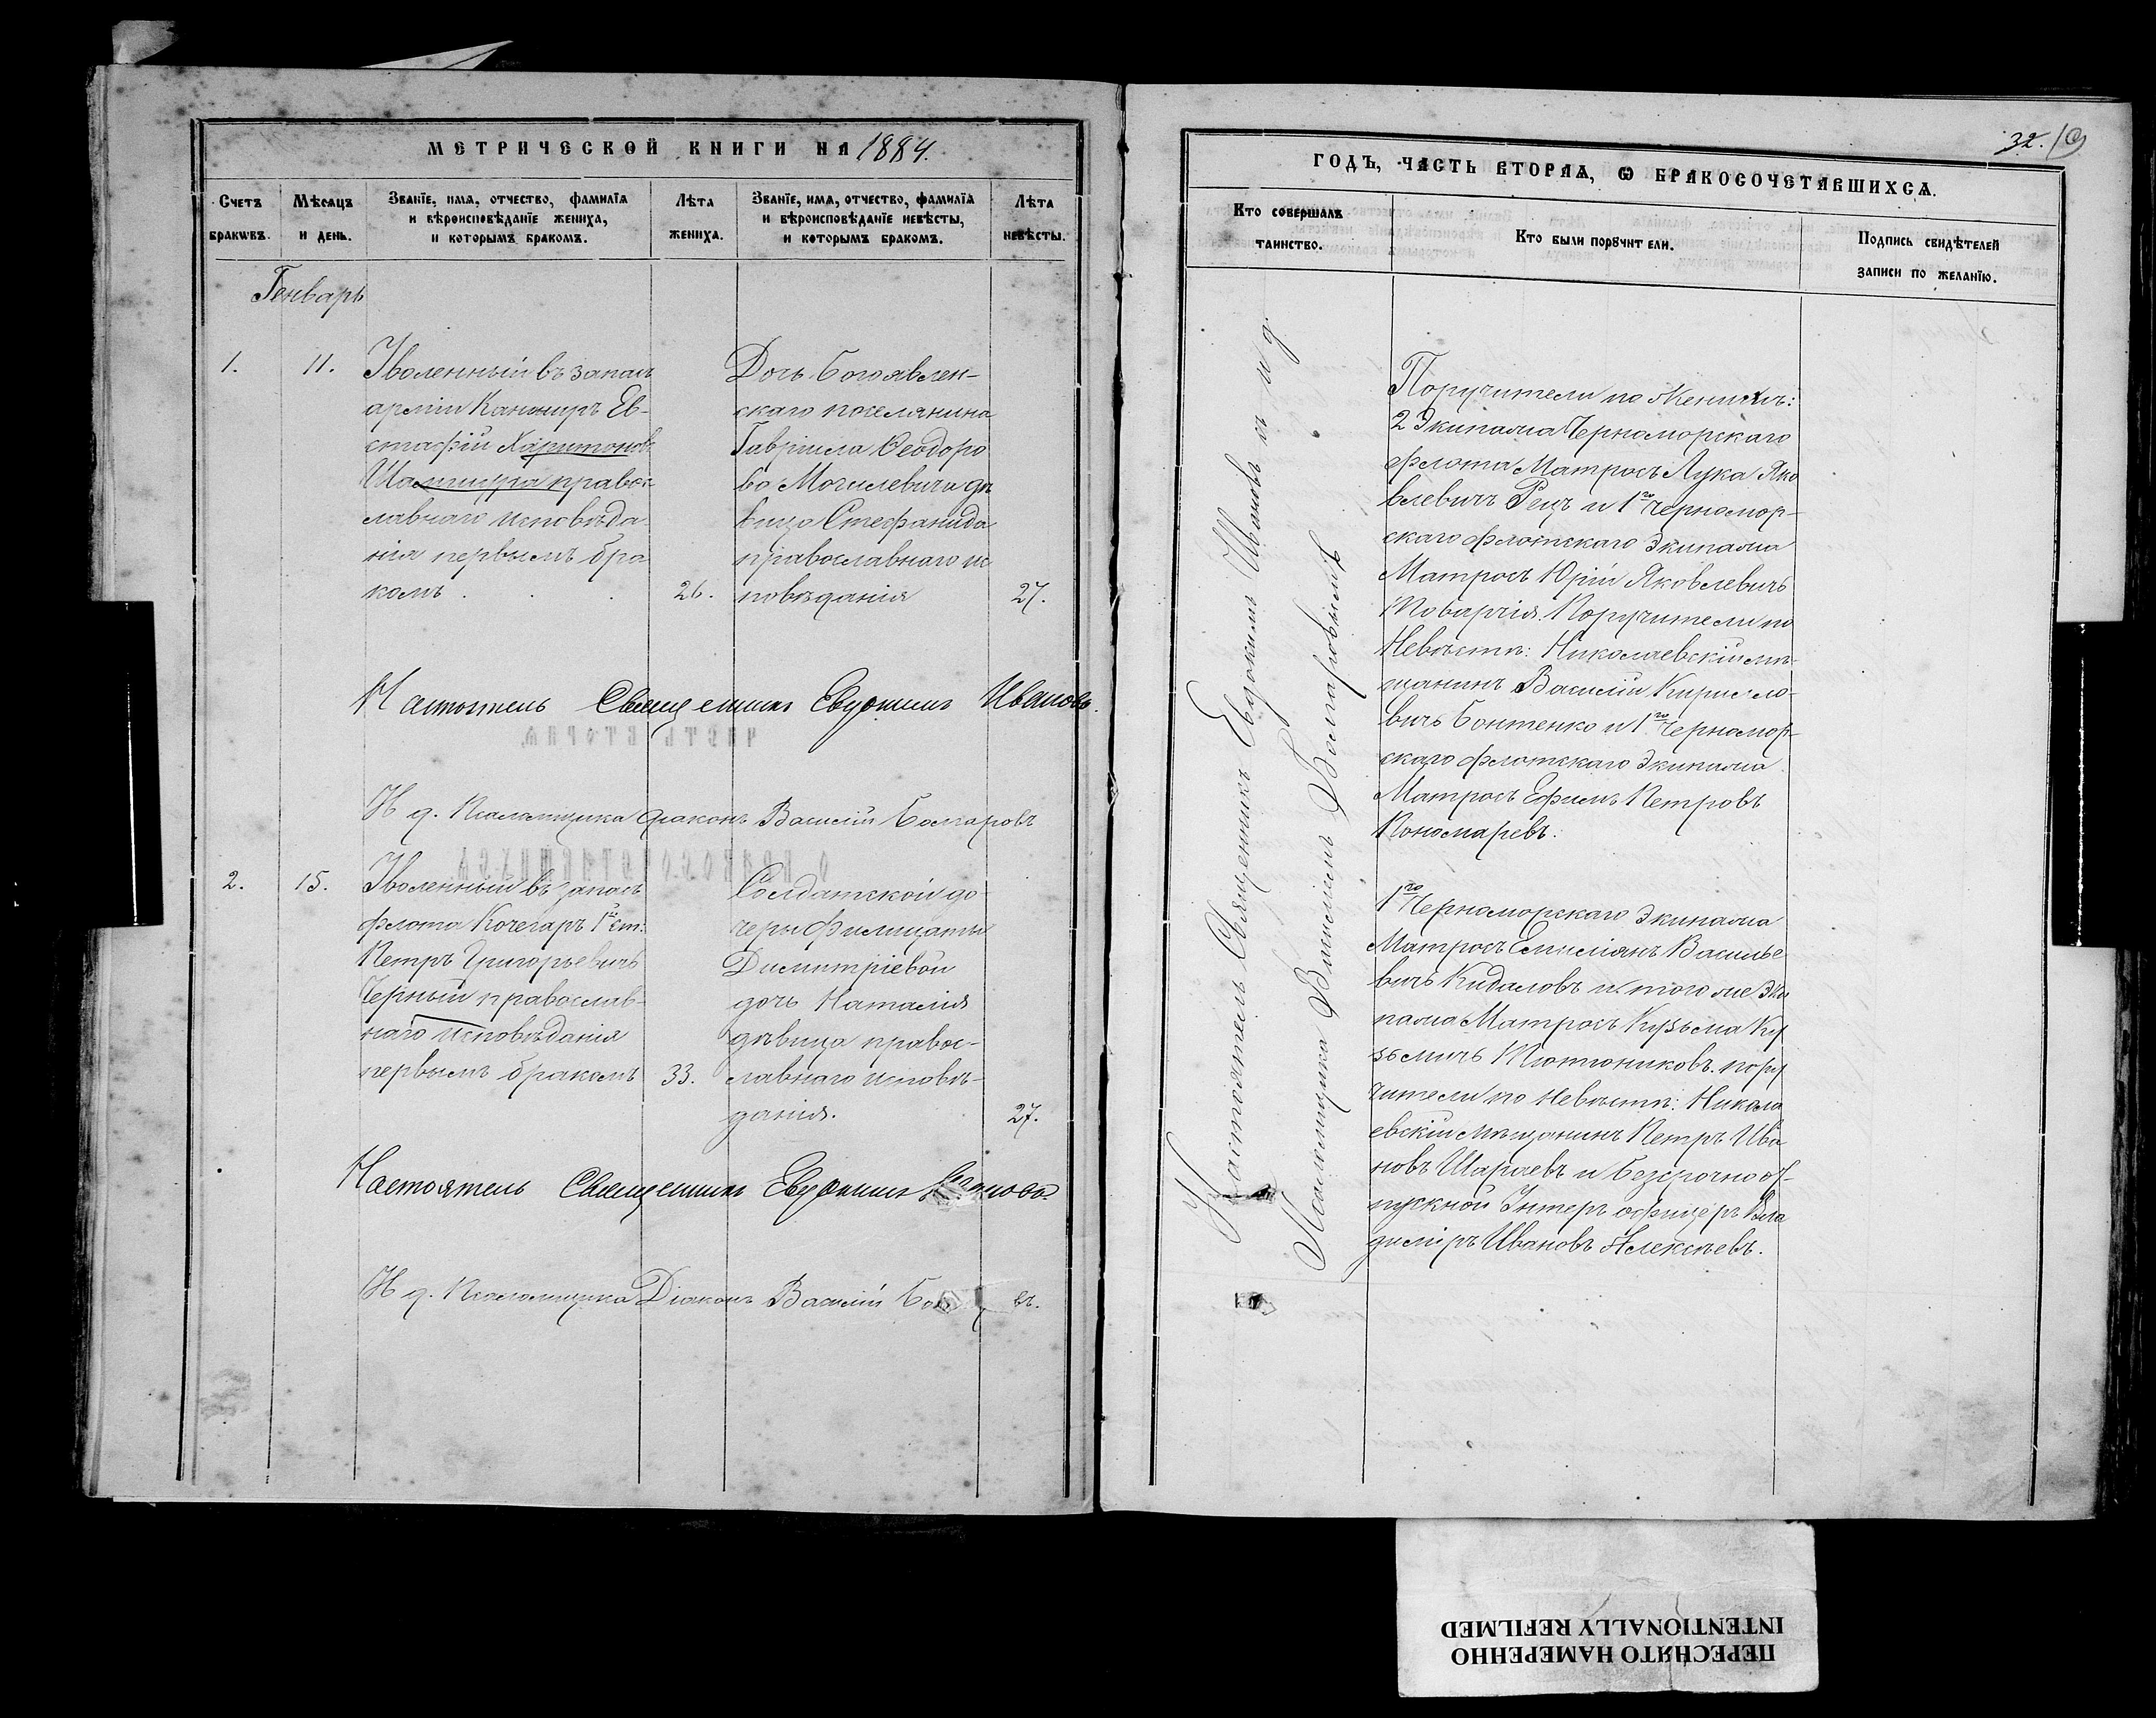 МЕТРИЧЕСКОЙ КНИГИ НА 1884.
Счетъ браковъ.
Мѣсяцъ и день.
Званіе, имя, отчество, фамилія
и вѣроисповѣданіе жениха,
и которымъ бракомъ.
Лѣта жениха.
Званіе, имя, отчество, фамилія
и вѣроисповѣданіе невѣсты,
и которымъ бракомъ.
Лѣта невѣсты.
Генварь
1.
11.
Уволенный въ запасъ
арміи Канониръ Ев-
стафій Харитоновъ
правос-
лавнаго исповѣда-
нія первымъ бра
комъ
26.
Дочь Богоявлен-
скаго поселянина
Гавріила Ѳеодоро
ва Могилевича дѣ
вица Стефанида
православнаго ис
повѣданія
27.
Настоятель Священникъ Евдокимъ Ивановъ.
И д. Псаломщика Діаконъ Василій Болгаровъ
2.
15.
Уволенный въ запасъ
флота Кочегаръ 1й ст:
Петръ Григорьевичъ
Черный православ-
наго исповѣданія
первымъ бракомъ
33.
Солдатской до-
чери Филицаты
Димитріевой
дочь Наталія
дѣвица правос-
лавнаго исповѣ-
данія.
27.
Настоятель Священникъ Евдокимъ Ивановъ
И д. Псаломщика Діаконъ Василій
32.
ГОДЪ, ЧАСТЬ ВТОРАЯ, Ѡ БРАКОСОЧЕТАВШИХСЯ.
Кто совершалъ таинство.
Кто были поручители.
Подпись свидѣтелей
записи по желанію.
Настоятель Священникъ Евдокимъ Ивановъ съ и д.
Псаломщика Василіемъ Болгаровымъ
Поручители по Женихѣ:
2 Экипажа Черноморскаго
флота Матросъ Лука Яко
влевичъ Рецъ и 1го Черномор-
скаго флотскаго Экипажа
Матросъ Юрій Яковлевичъ
Поручители по
Невѣстѣ: Николаевскій мѣ-
щанинъ Василій Кирилло-
вичъ Бонтенко и 1го Черномор-
скаго флотскаго Экипажа
Матросъ Ефимъ Петровъ
Пономаревъ.
1го Черноморскаго Экипажа
Матросъ Емиліянъ Василье
вичъ Кидаловъ и того же Эки
пажа Матросъ Кузьма Ку
зьмичъ Плотниковъ. пору
чители по Невѣстѣ: Никола
евскій мѣщанинъ Петръ Ива
новъ Шараевъ и безсрочно от-
пускной Унтеръ офицеръ Вла
диміръ Ивановъ Алексѣевъ.
ПЕРЕСНЯТО НАМЕРЕННО
INTENTIONALLY REFILMED